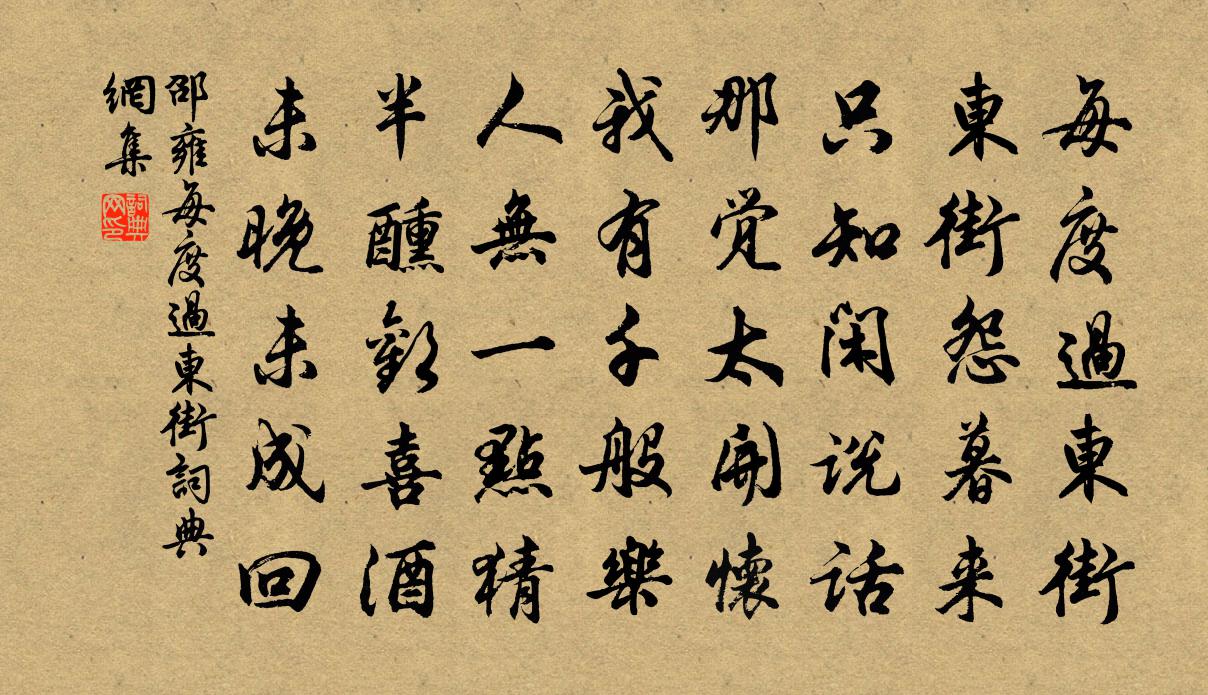 每度過東街
東街怨暮来
只知閑説話
那觉太開懷
我有千般樂
人無一點猜
半醺歡喜酒
未晚未成回
邵雍每度過東街詞典
網集
詞典
网印